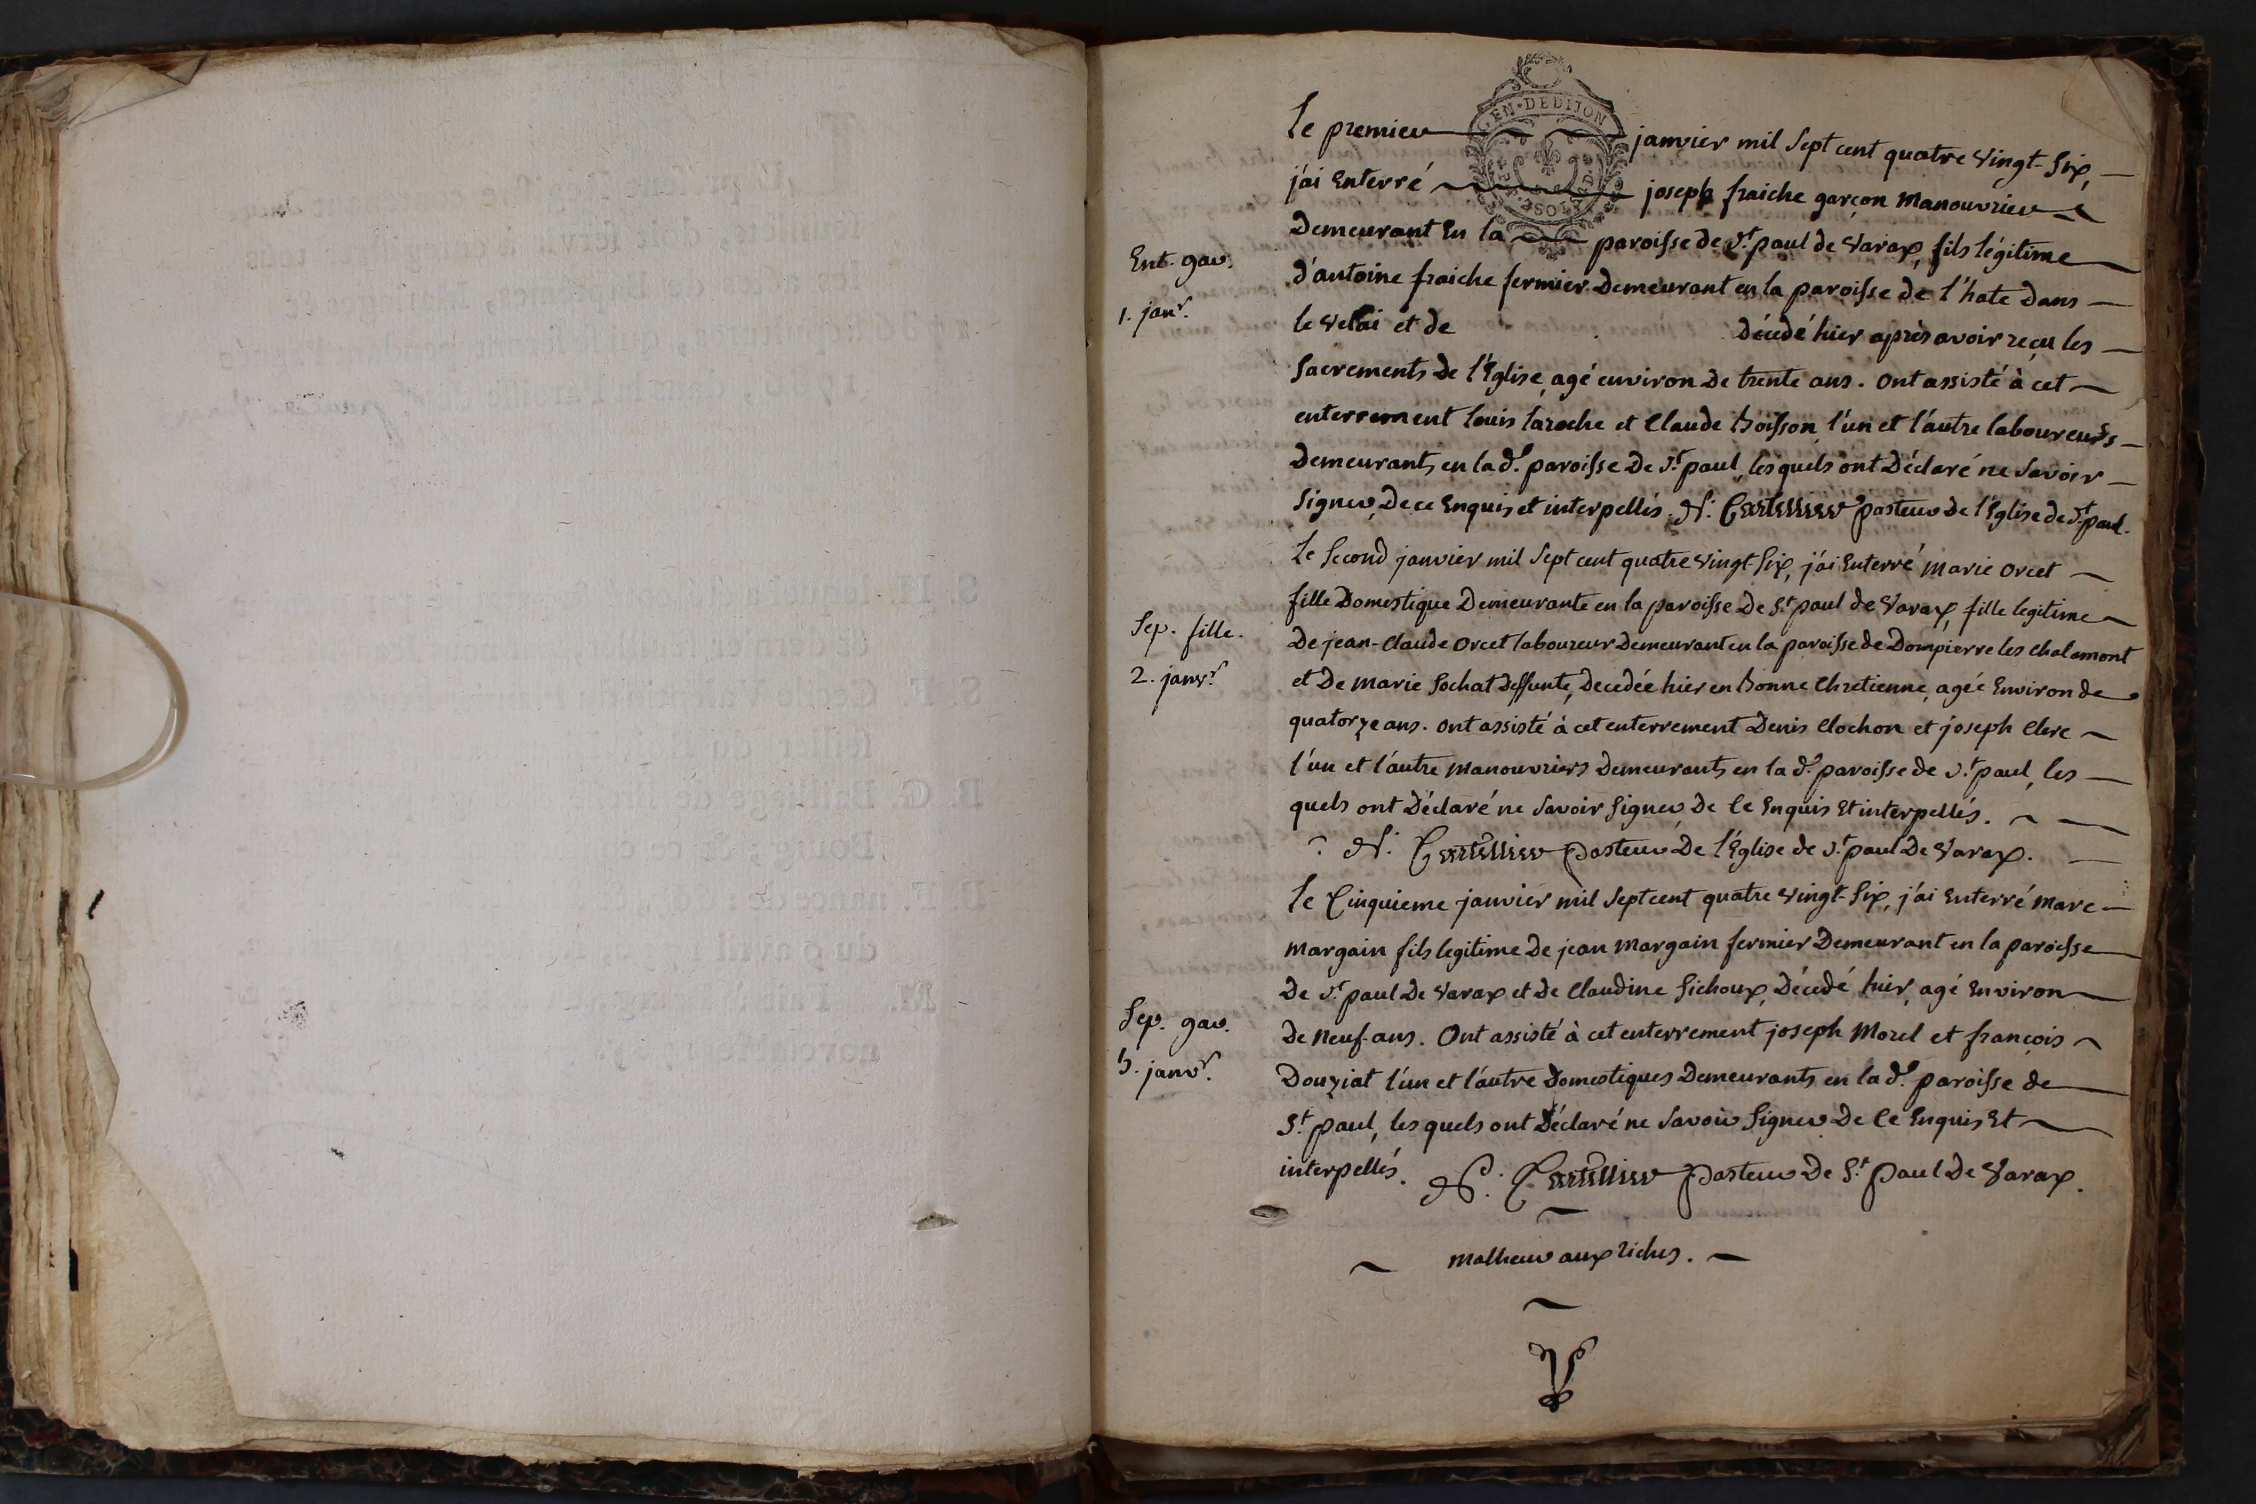 GEN·DEDIJON
Le premier janvier mil sept cent quatre vingt-six,
j'ai Enterré joseph fraiche garçon manouvrier
Demeurant En la paroisse de St. paul de Varax, fils légitime
Ent. gar. d'antoine fraiche fermier Demeurant en la paroisse de l'hate Dans
1. janr. le Velai et de Décédé hier après avoir reçu les
Sacrements de l'Eglise, agé environ De trente ans. Ont assisté à cet
enterrement Louis Laroche et Claude Boisson, l'un et l'autre laboureurs
Demeurants en la de. paroisse De St. paul, les quels ont Déclaré ne Savoir
signer, De ce Enquis et interpellés. N. pasteur De l'Eglise de St. paul.
Le Second janvier mil Sept cent quatre vingt-Six, j'ai Enterré marie orcet
Sep. fille. fille Domestique Demeurante en la paroisse De St. paul de Varax, fille legitime
De jean-Claude orcet laboureur Demeurant en la paroisse de Dompierre les Chalamont
2. janvr. et De marie Sochat Deffunte, Decedée hier en Bonne Chretienne, agée Environ de
quatorze ans. Ont assisté à cet enterrement Denis Clochon et joseph Clerc
l'un et l'autre manouvriers Demeurants en la de. paroisse de St. paul, les
quels ont Déclaré ne Savoir Signer De Ce Enquis Et interpellés.
N. pasteur De l'Eglise de St. paul De Varax.
Le Cinquieme janvier mil Sept cent quatre vingt-Six, j'ai Enterré marc
margain fils legitime De jean margain fermier Demeurant en la paroisse
De St. paul De Varax et de Claudine Sichoux, Décédé hier, agé Environ
Sep. gar. De neuf-ans. Ont assisté à cet enterrement joseph Morel et françois
5. janvr. Douziat l'un et l'autre Domestiques Demeurants en la de. paroisse de
St. paul, les quels ont Déclaré ne Savoir Signer De Ce Enquis Et
interpellés. N. pasteur De St. paul De Varax.
malheur aux riches.